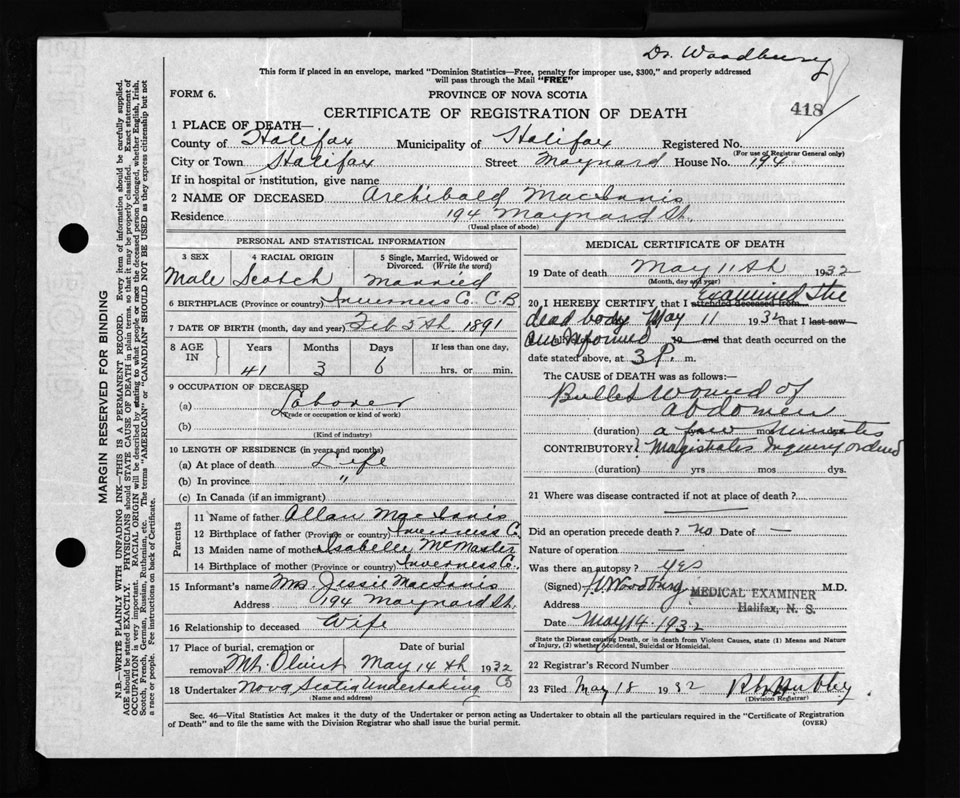 Dr. Woodbury
This form if placed in an envelope, marked "Dominion Statistics—Free, penalty for improper use, $300," and properly addressed
will pass through the Mail "FREE"
FORM 6.
PROVINCE OF NOVA SCOTIA
CERTIFICATE OF REGISTRATION OF DEATH
418
1 PLACE OF DEATH—
County of Halifax Municipality of Halifax Registered No.
(For use of Registrar General only)
City or Town Halifax Street Maynard House No. 194
If in hospital or institution, give name
2 NAME OF DECEASED Archibald MacInnis
Residence 194 Maynard St.
(Usual place of abode)
PERSONAL AND STATISTICAL INFORMATION
3 SEX 4 RACIAL ORIGIN 5 Single, Married, Widowed or Divorced. (Write the word)
Male Scotch Married
6 BIRTHPLACE (Province or country) Inverness Co. C.B
7 DATE OF BIRTH (month, day and year) Feb 5th 1891
8 AGE IN Years Months Days If less than one day,
41 3 6 hrs. or min.
9 OCCUPATION OF DECEASED
(a) Laborer
(Trade or occupation or kind of work)
(b)
(Kind of industry)
10 LENGTH OF RESIDENCE (in years and months)
(a) At place of death Life
(b) In province "
(c) In Canada (if an immigrant)
Parents
11 Name of father Allan MacInnis
12 Birthplace of father (Province or country) Inverness C.
13 Maiden name of mother Isabelle McMaster
14 Birthplace of mother (Province or country) Inverness Co.
15 Informant's name Mrs Jessie MacInnis
Address 194 Maynard St.
16 Relationship to deceased Wife
17 Place of burial, cremation or removal Date of burial
Mt. Olivet May 14th 1932
18 Undertaker Nova Scotia Undertaking Co
(Name and address)
MEDICAL CERTIFICATE OF DEATH
19 Date of death May 11th 1932
(Month, day and year)
20 I HEREBY CERTIFY, that I attended deceased from Examined the
dead body May 11 1932 that I last saw
am informed 19 and that death occurred on the
date stated above, at 3 P. m.
The CAUSE of DEATH was as follows:—
Bullet Wound of
abdomen
(duration) a few yrs mos minutes
CONTRIBUTORY Magistrates Inquiry ordered
(duration) yrs mos dys.
21 Where was disease contracted if not at place of death?
Did an operation precede death? no Date of —
Nature of operation —
Was there an autopsy? yes
(Signed) Woodbury M.D.
MEDICAL EXAMINER
Address Halifax, N. S.
Date May 14 1932
State the Disease causing Death, or in death from Violent Causes, state (1) Means and Nature
of Injury, (2) whether Accidental, Suicidal or Homicidal.
22 Registrar's Record Number
23 Filed May 18 1932
(Division Registrar)
Sec. 46—Vital Statistics Act makes it the duty of the Undertaker or person acting as Undertaker to obtain all the particulars required in the "Certificate of Registration
of Death" and to file the same with the Division Registrar who shall issue the burial permit. (OVER)
MARGIN RESERVED FOR BINDING
N.B.—WRITE PLAINLY WITH UNFADING INK—THIS IS A PERMANENT RECORD. Every item of information should be carefully supplied.
AGE should be stated EXACTLY. PHYSICIANS should STATE CAUSE OF DEATH in plain terms, so that it may be properly classified. Exact statement of
OCCUPATION is very important. RACIAL ORIGIN will be described by stating to what people or race the deceased person belonged, whether English, Irish,
Scotch, French, German, Russian, Ruthenian, etc. The terms "AMERICAN" or "CANADIAN" SHOULD NOT BE USED as they express citizenship but not
a race or people. Fee instructions on back of Certificate.